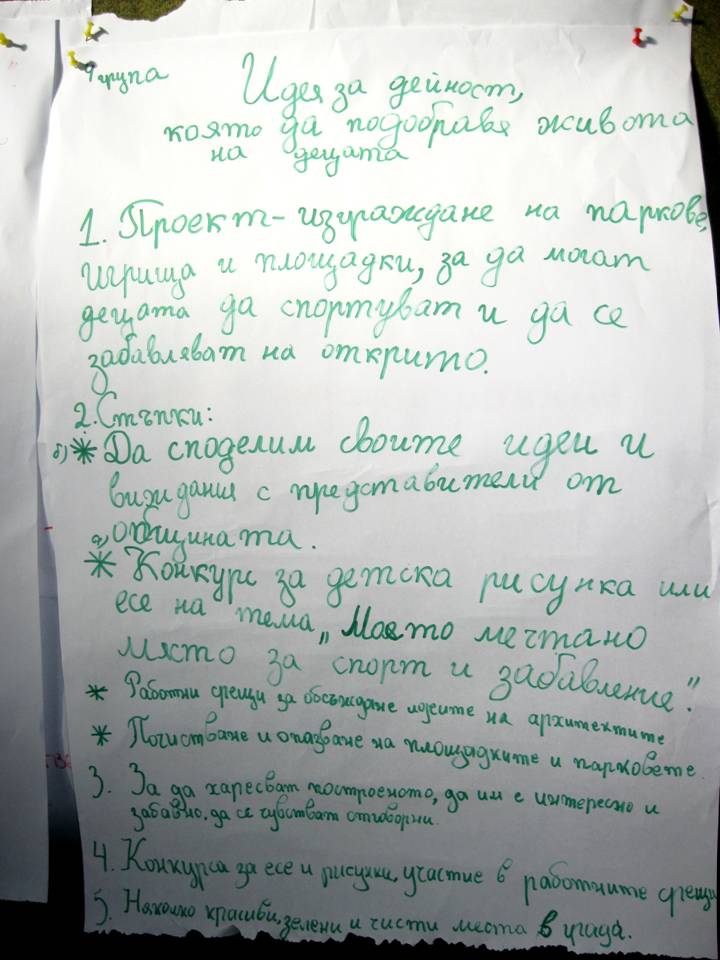 група
Идея за дейност,
която да подобравя живота
на децата
1. Проект - изграждане на паркове,
игрища и площадки, за да могат
децата да спортуват и да се
забавляват на открито.
2. Стъпки:
б) * Да споделим своите идеи и
виждания с представители от
общината.
а) * Конкурс за детска рисунка или
есе на тема „Моето мечтано
място за спорт и забавление".
* Работни срещи за обсъждане идеите на архитектите
* Почистване и опазване на площадките и парковете
3. За да харесват построеното, да им е интересно и
забавно, да се чувстват отговорни.
4. Конкурса за есе и рисунки, участие в работните срещи
5. Няколко красиви, зелени и чисти места в града.